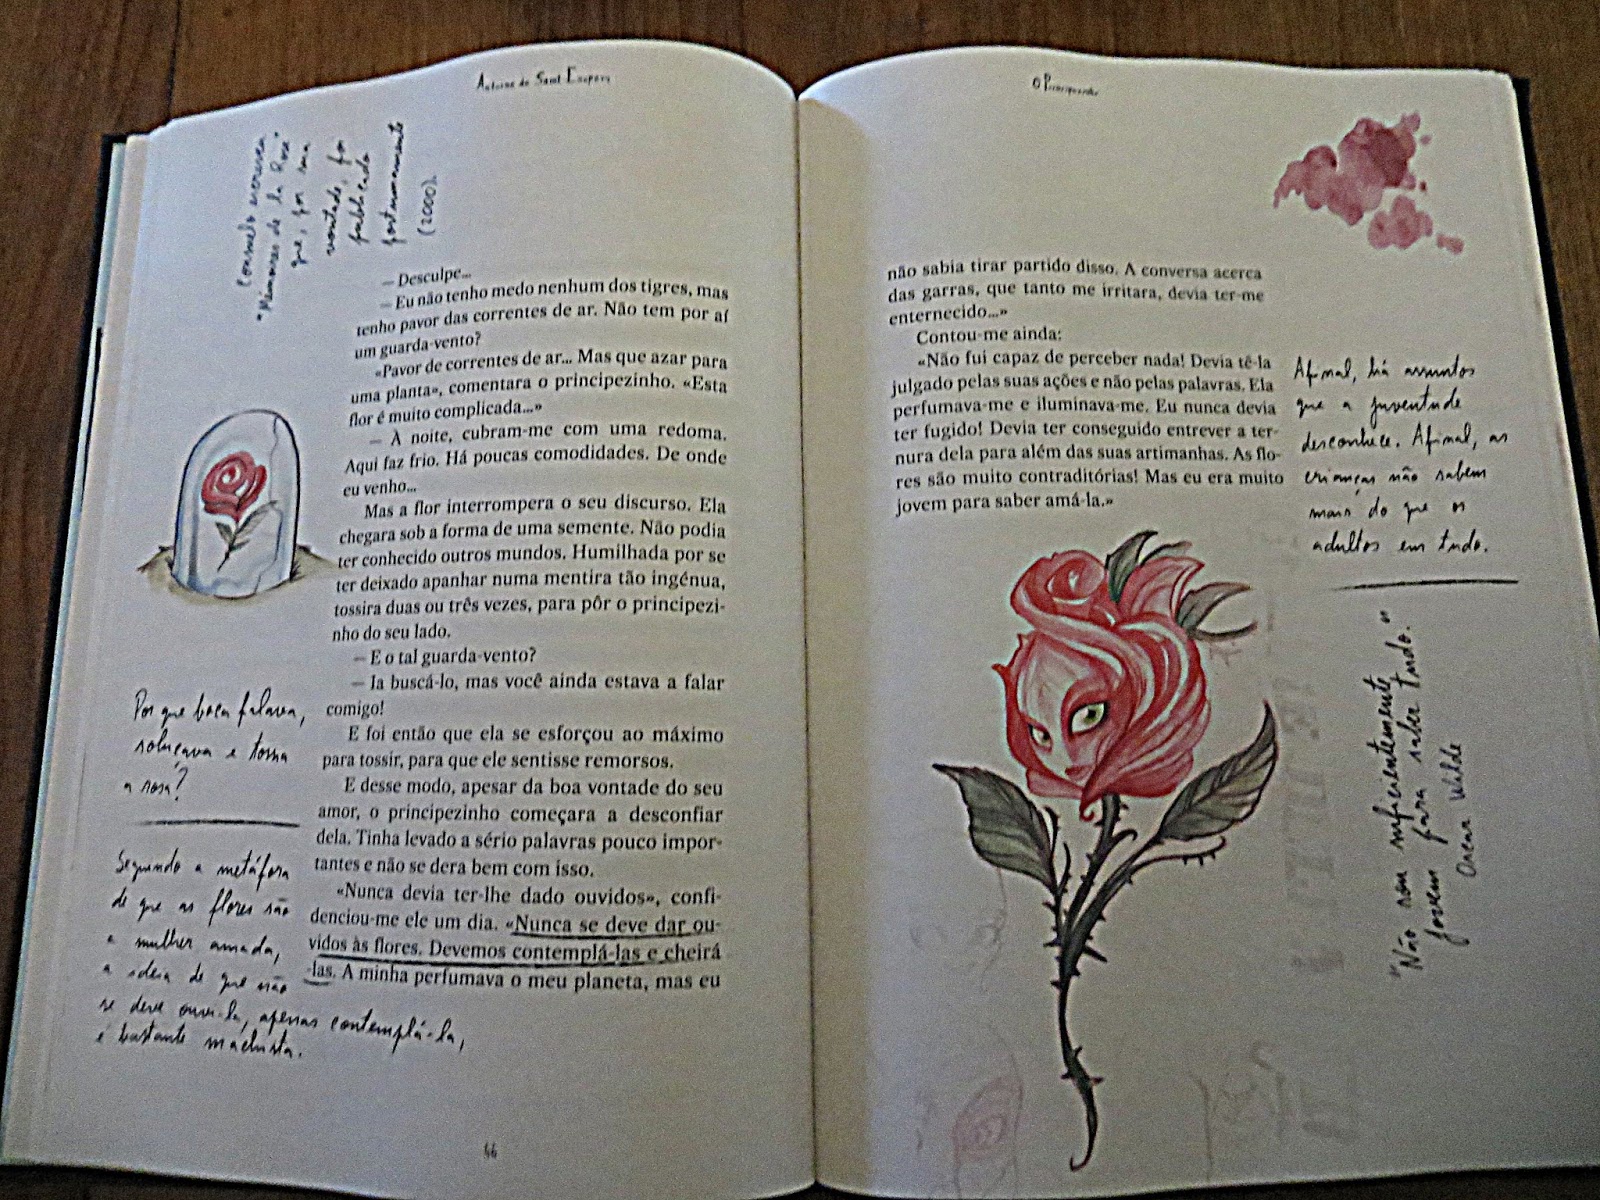 Antoine de Saint Exupéry
Consuelo escreveu
"Mémoires de la Rose"
que, por sua
vontade, foi
publicado
postumamente
(2000).
— Desculpe...
— Eu não tenho medo nenhum dos tigres, mas
tenho pavor das correntes de ar. Não tem por aí
um guarda-vento?
«Pavor de correntes de ar... Mas que azar para
uma planta», comentara o principezinho. «Esta
flor é muito complicada...»
— À noite, cubram-me com uma redoma.
Aqui faz frio. Há poucas comodidades. De onde
eu venho...
Mas a flor interrompera o seu discurso. Ela
chegara sob a forma de uma semente. Não podia
ter conhecido outros mundos. Humilhada por se
ter deixado apanhar numa mentira tão ingénua,
tossira duas ou três vezes, para pôr o principezi-
nho do seu lado.
— E o tal guarda-vento?
— Ia buscá-lo, mas você ainda estava a falar
comigo!
E foi então que ela se esforçou ao máximo
para tossir, para que ele sentisse remorsos.
E desse modo, apesar da boa vontade do seu
amor, o principezinho começara a desconfiar
dela. Tinha levado a sério palavras pouco impor-
tantes e não se dera bem com isso.
«Nunca devia ter-lhe dado ouvidos», confi-
denciou-me ele um dia. «Nunca se deve dar ou-
vidos às flores. Devemos contemplá-las e cheirá
-las. A minha perfumava o meu planeta, mas eu
Por que boca falava,
soluçava e tossia
a rosa?
Segundo a metáfora
de que as flores são
a mulher amada,
a ideia de que não
se deve ouvi-la, apenas contemplá-la,
é bastante machista.
46
O Principezinho
não sabia tirar partido disso. A conversa acerca
das garras, que tanto me irritara, devia ter-me
enternecido...»
Contou-me ainda:
«Não fui capaz de perceber nada! Devia tê-la
julgado pelas suas ações e não pelas palavras. Ela
perfumava-me e iluminava-me. Eu nunca devia
ter fugido! Devia ter conseguido entrever a ter-
nura dela para além das suas artimanhas. As flo-
res são muito contraditórias! Mas eu era muito
jovem para saber amá-la.»
Afinal, há assuntos
que a juventude
desconhece. Afinal, as
crianças não sabem
mais do que os
adultos em tudo.
"Não sou suficientemente
jovem para saber tudo."
Oscar Wilde